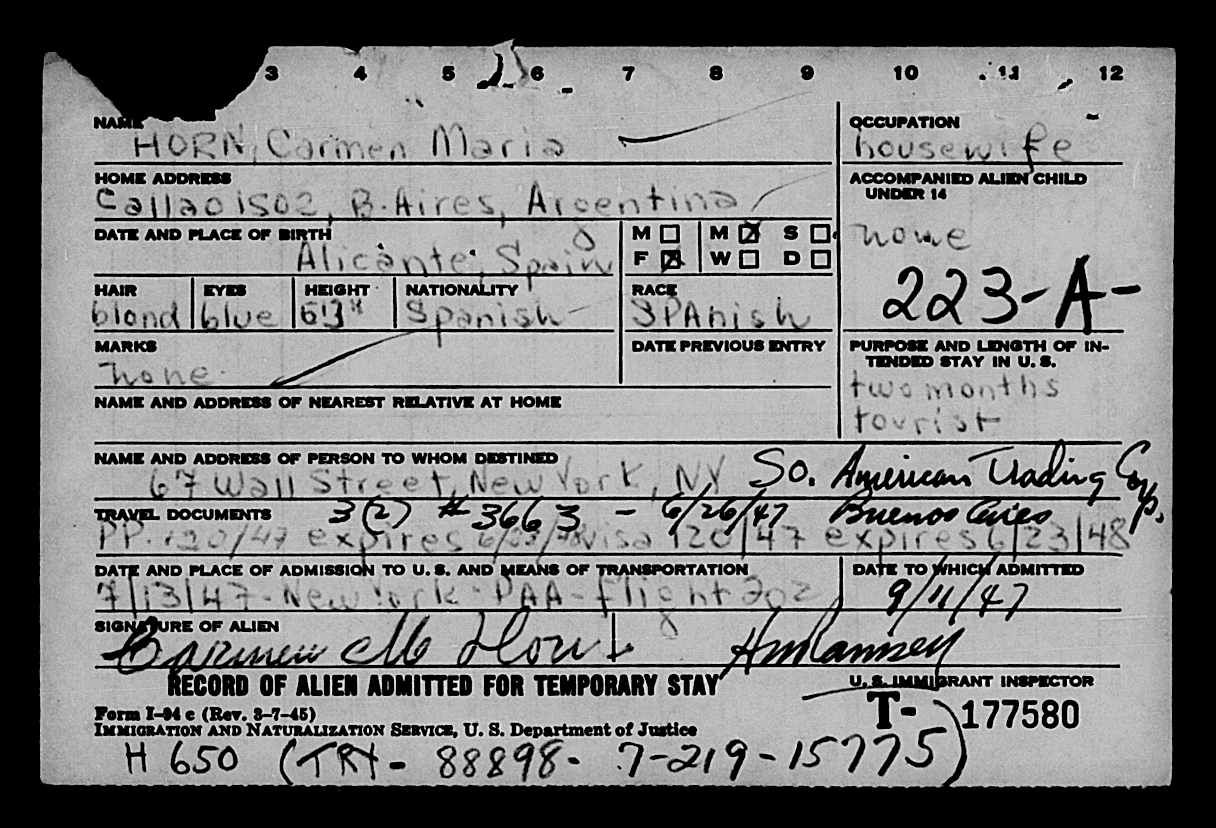 3 4 5 6 7 8 9 10 11 12
NAME OCCUPATION
HORN, Carmen Maria housewife
HOME ADDRESS ACCOMPANIED ALIEN CHILD UNDER 14
Callao 1502, B. Aires, Argentina none
DATE AND PLACE OF BIRTH M ☐ M ☒ S ☐
Alicante, Spain F ☒ W ☐ D ☐
223-A-
HAIR EYES HEIGHT NATIONALITY RACE
blond blue Spanish SPAnish
MARKS DATE PREVIOUS ENTRY PURPOSE AND LENGTH OF IN-
TENDED STAY IN U. S.
none two months
tourist
NAME AND ADDRESS OF NEAREST RELATIVE AT HOME
NAME AND ADDRESS OF PERSON TO WHOM DESTINED
67 Wall Street, New York, NY So. American Trading Corp.
TRAVEL DOCUMENTS 3(2) #3663 - 6/26/47 Buenos Aires
PP. 120/47 expires visa 120/47 expires 6/23/48
DATE AND PLACE OF ADMISSION TO U. S. AND MEANS OF TRANSPORTATION DATE TO WHICH ADMITTED
7/13/47 - New York - PAA - flight 202 9/11/47
SIGNATURE OF ALIEN
Carmen M Horn HmRamsey
RECORD OF ALIEN ADMITTED FOR TEMPORARY STAY U. S. IMMIGRANT INSPECTOR
Form I-94 c (Rev. 3-7-45) T- 177580
IMMIGRATION AND NATURALIZATION SERVICE, U. S. Department of Justice
H 650 (TRI- 88898- 7-219-15775)